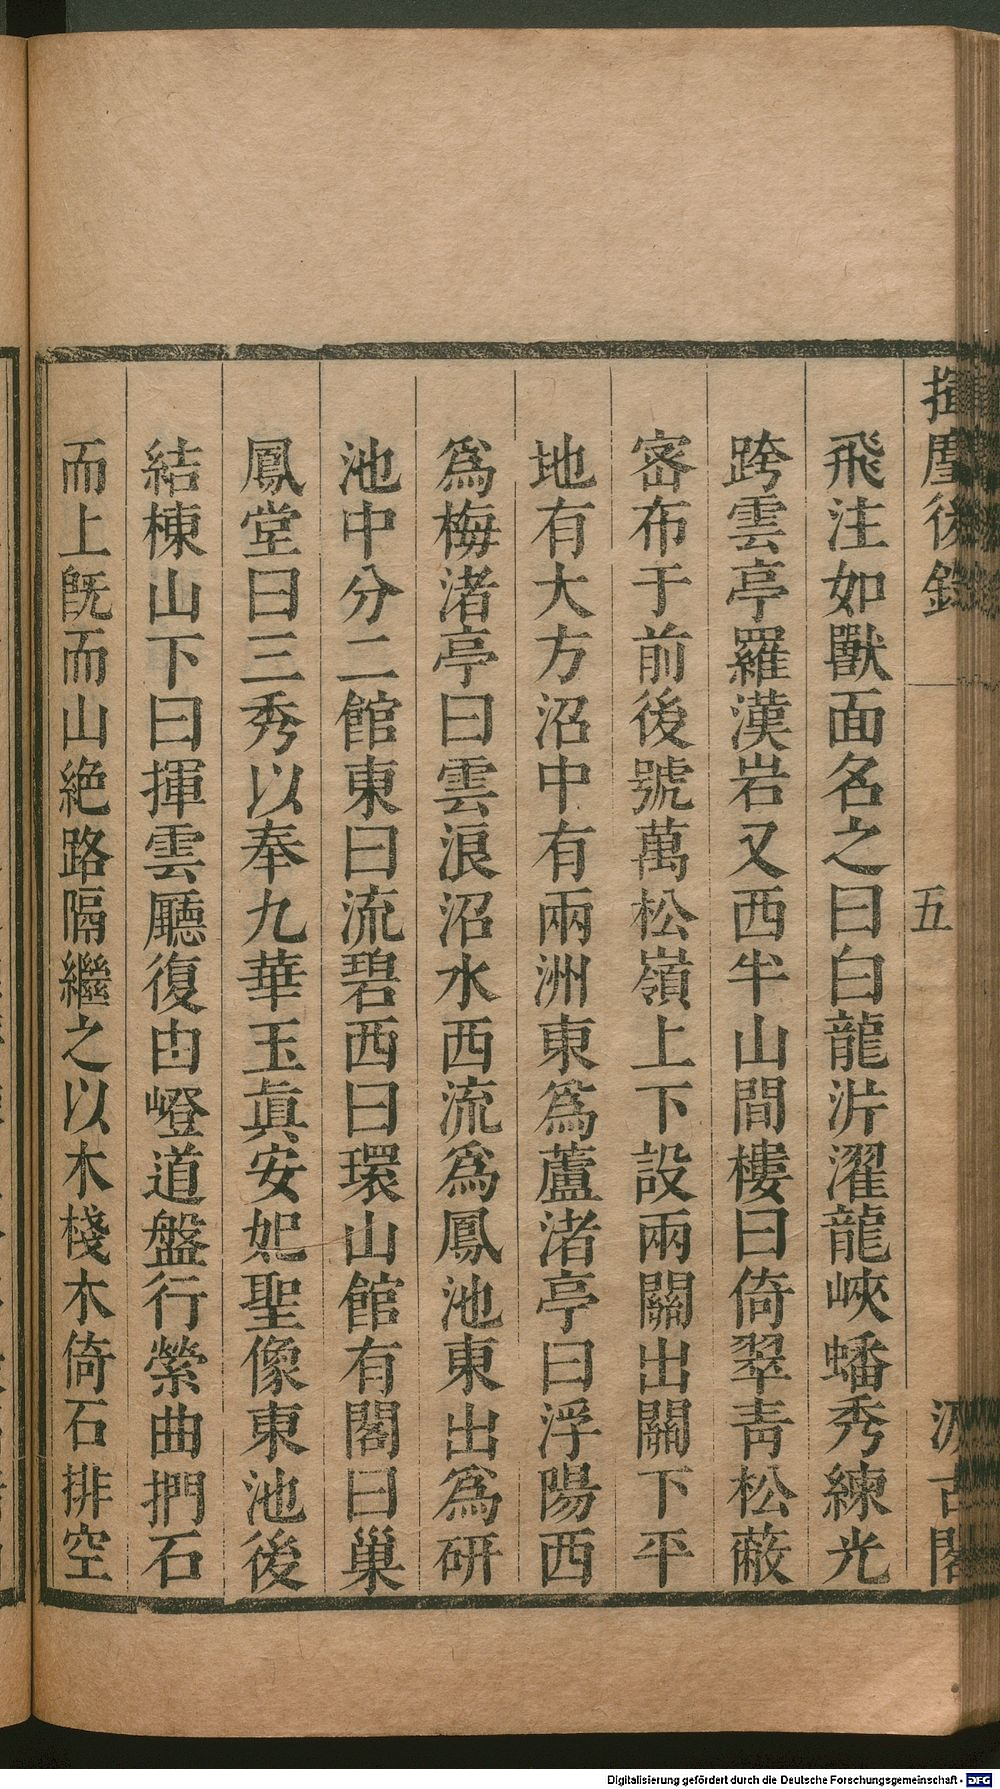 揮塵後錄
五
汲古閣
飛注如獸面名之曰白龍沜濯龍峽蟠秀練光
跨雲亭羅漢岩又西半山間樓曰倚翠青松蔽
宻布于前後號萬松嶺上下設兩關出關下平
地有大方沼中有兩洲東爲蘆渚亭曰浮陽西
爲梅渚亭曰雲浪沼水西流爲鳳池東出爲研
池中分二館東曰流碧西曰環山館有閣曰巢
鳳堂曰三秀以奉九華玉眞安妃聖像東池後
結棟山下曰揮雲廳復由嶝道盤行縈曲捫石
而上旣而山絶路隔繼之以木棧木倚石排空
Digitalisierung gefördert durch die Deutsche Forschungsgemeinschaft - DFG